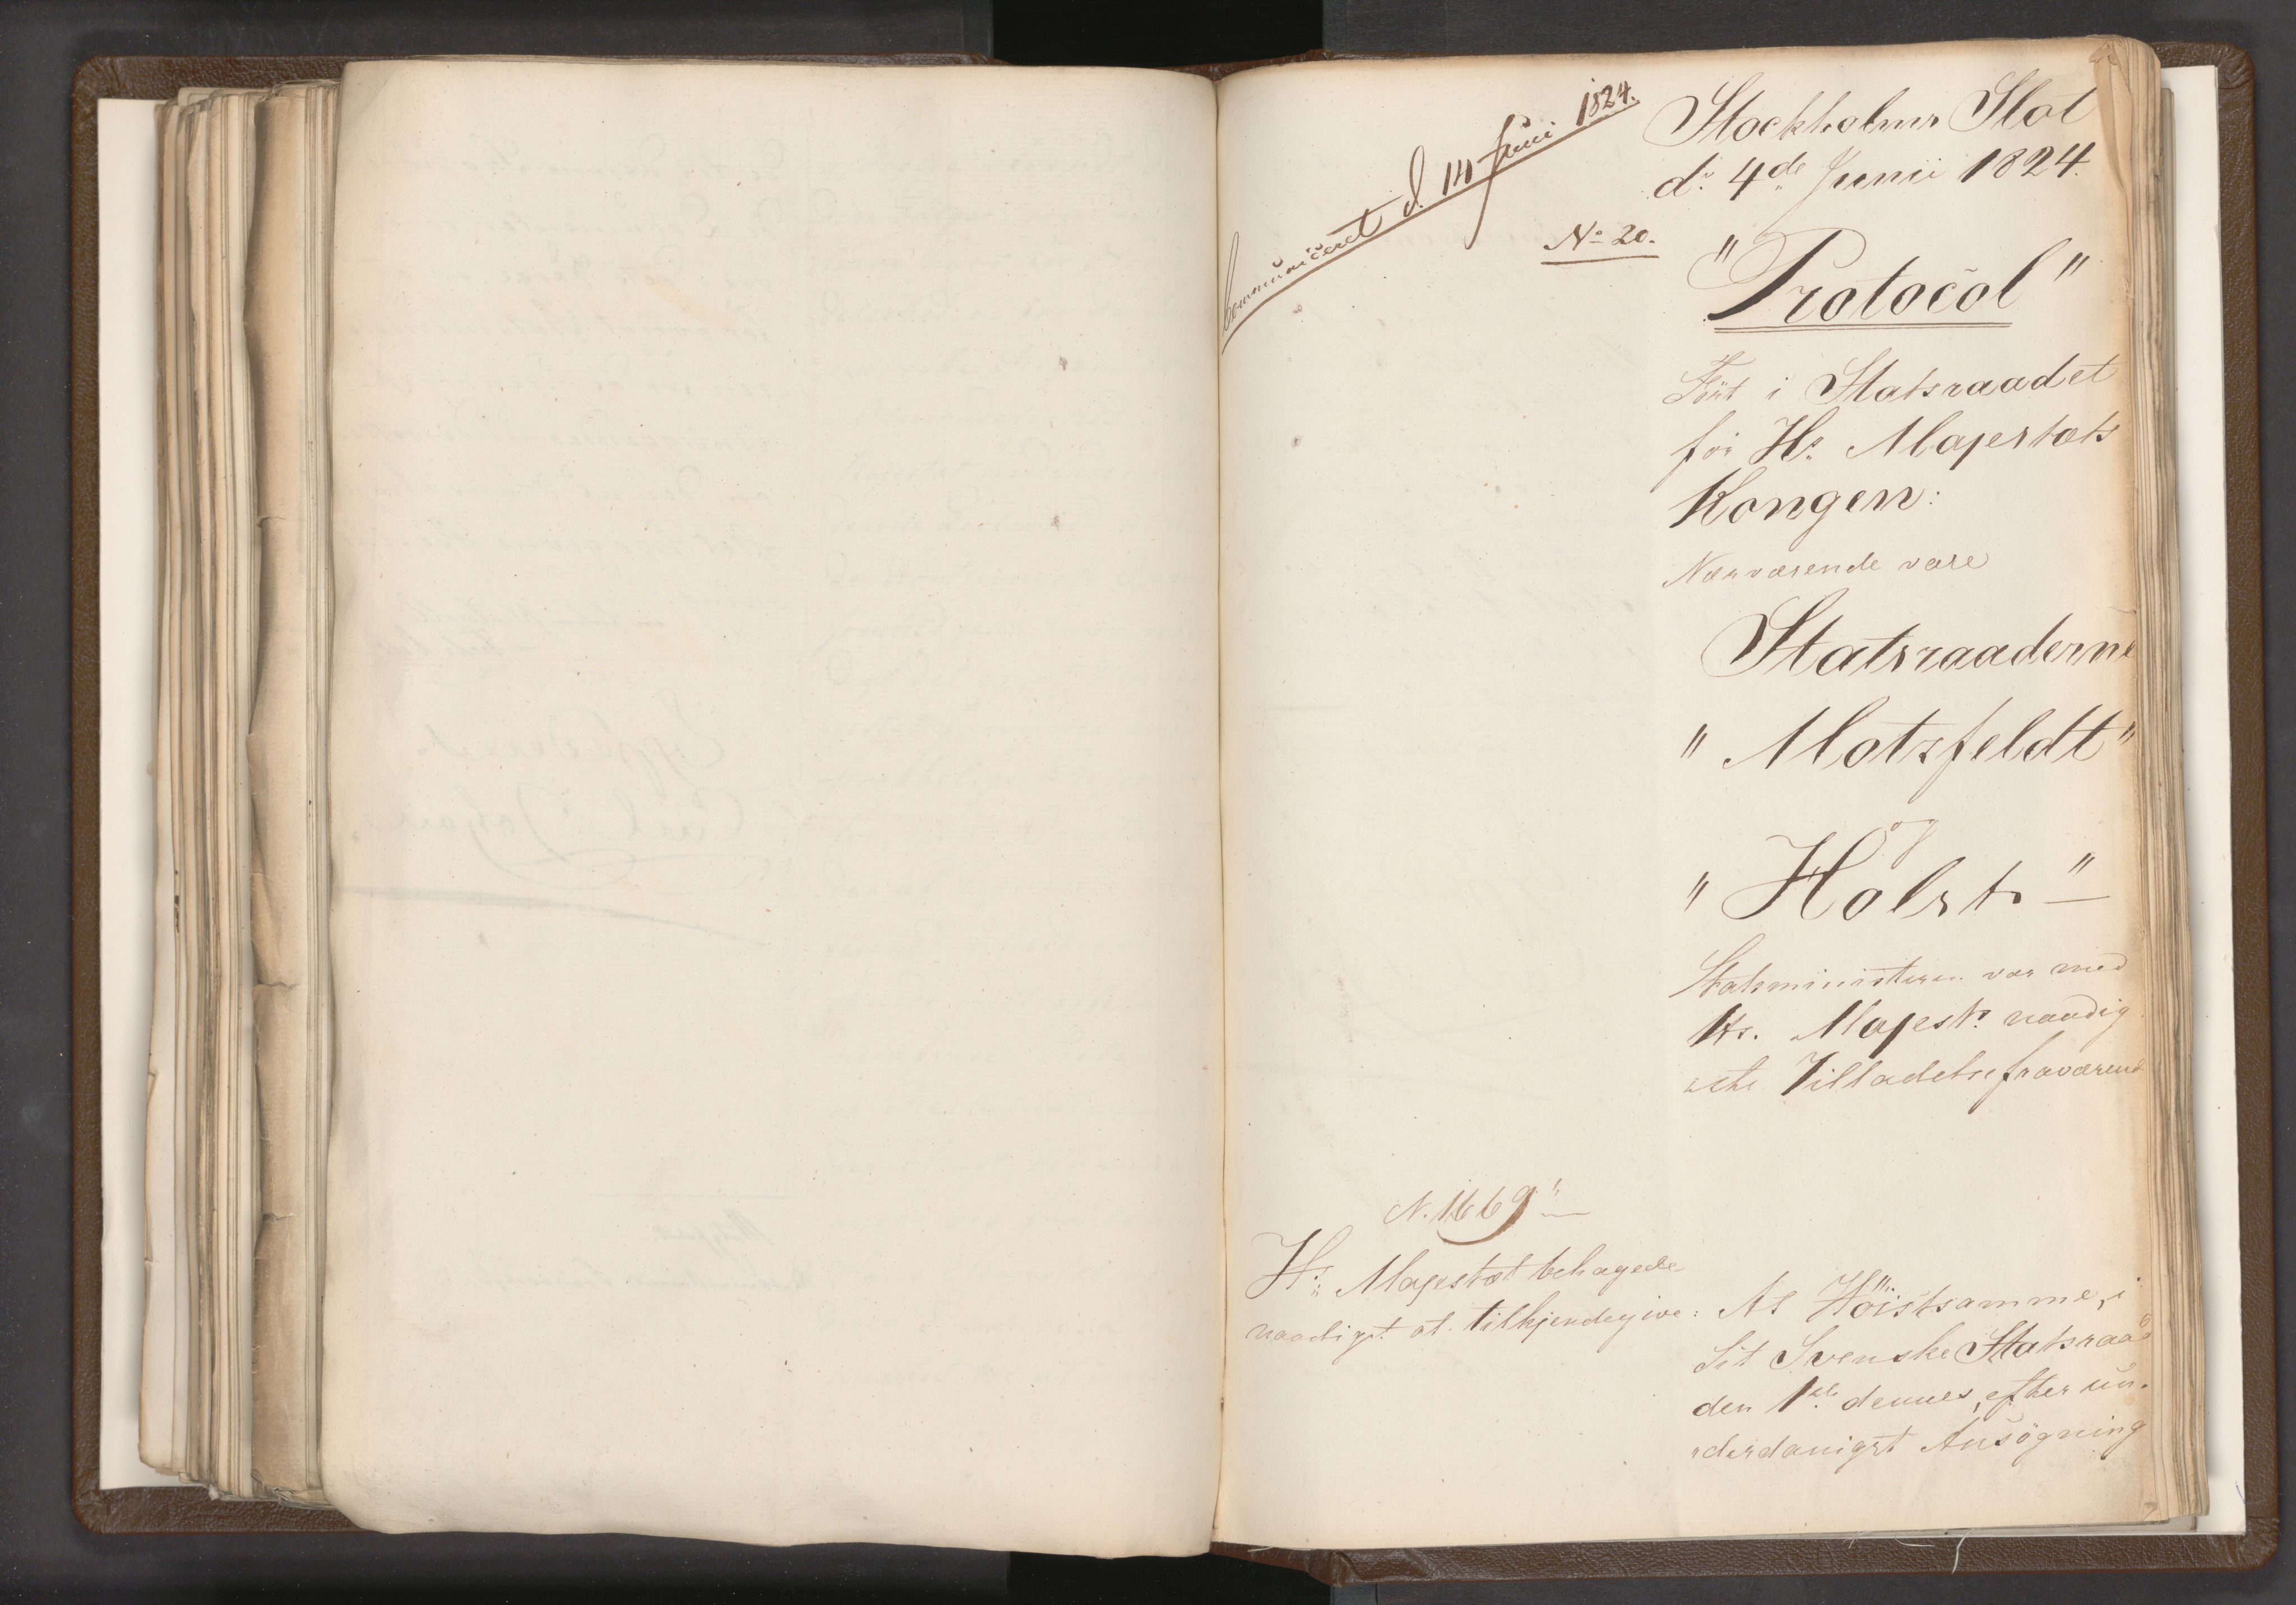 Communiceret d. 14 Juni 1824.
Stockholms Slot
d. 4de Junii 1824.
No 20.
"Protocol"
Fört i Statsraadet
för Hs. Majestæts
Kongen:
Nærværende vare
Statsraaderne
"Motzfeldt"
og
"Holst"
Statsministeren var med
Hs. Majests. naadig
ste Tilladelse fraværend
N. 1669"
Hs. Majestæt behagede
naadigst at tilkjendegive:
At Höistsamme, i
Sit Svenske Statsraad
den 1ste dennes, efter un-
derdanigst Ansögning